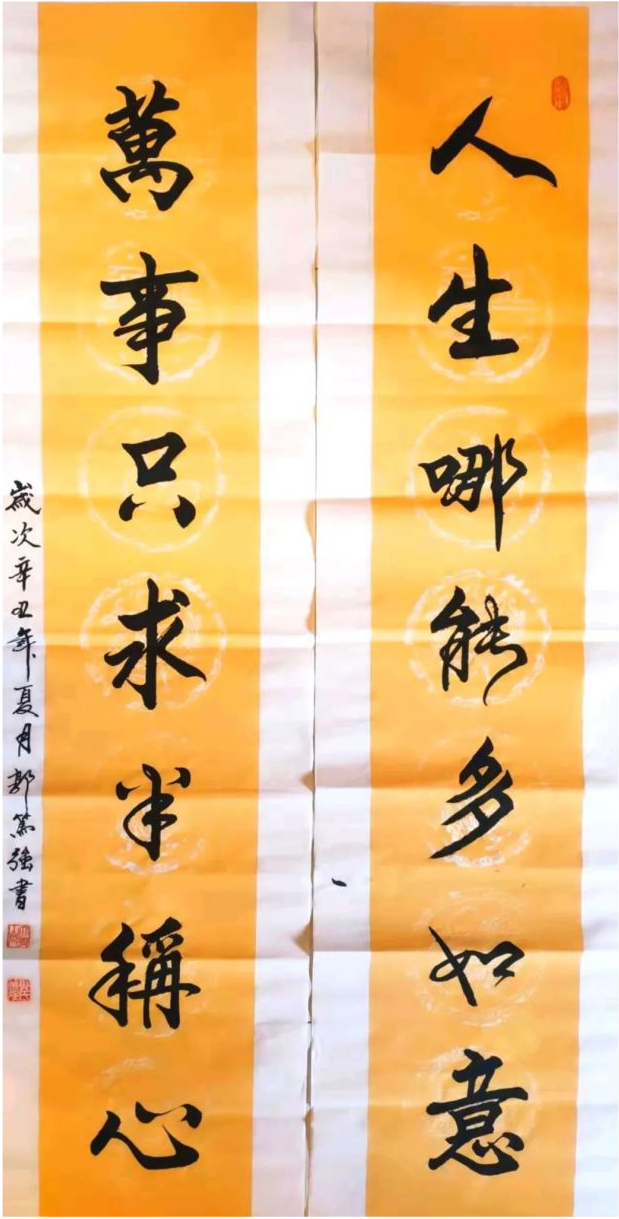 人生哪能多如意
萬事只求半稱心
歲次辛丑年夏月郭篤強書